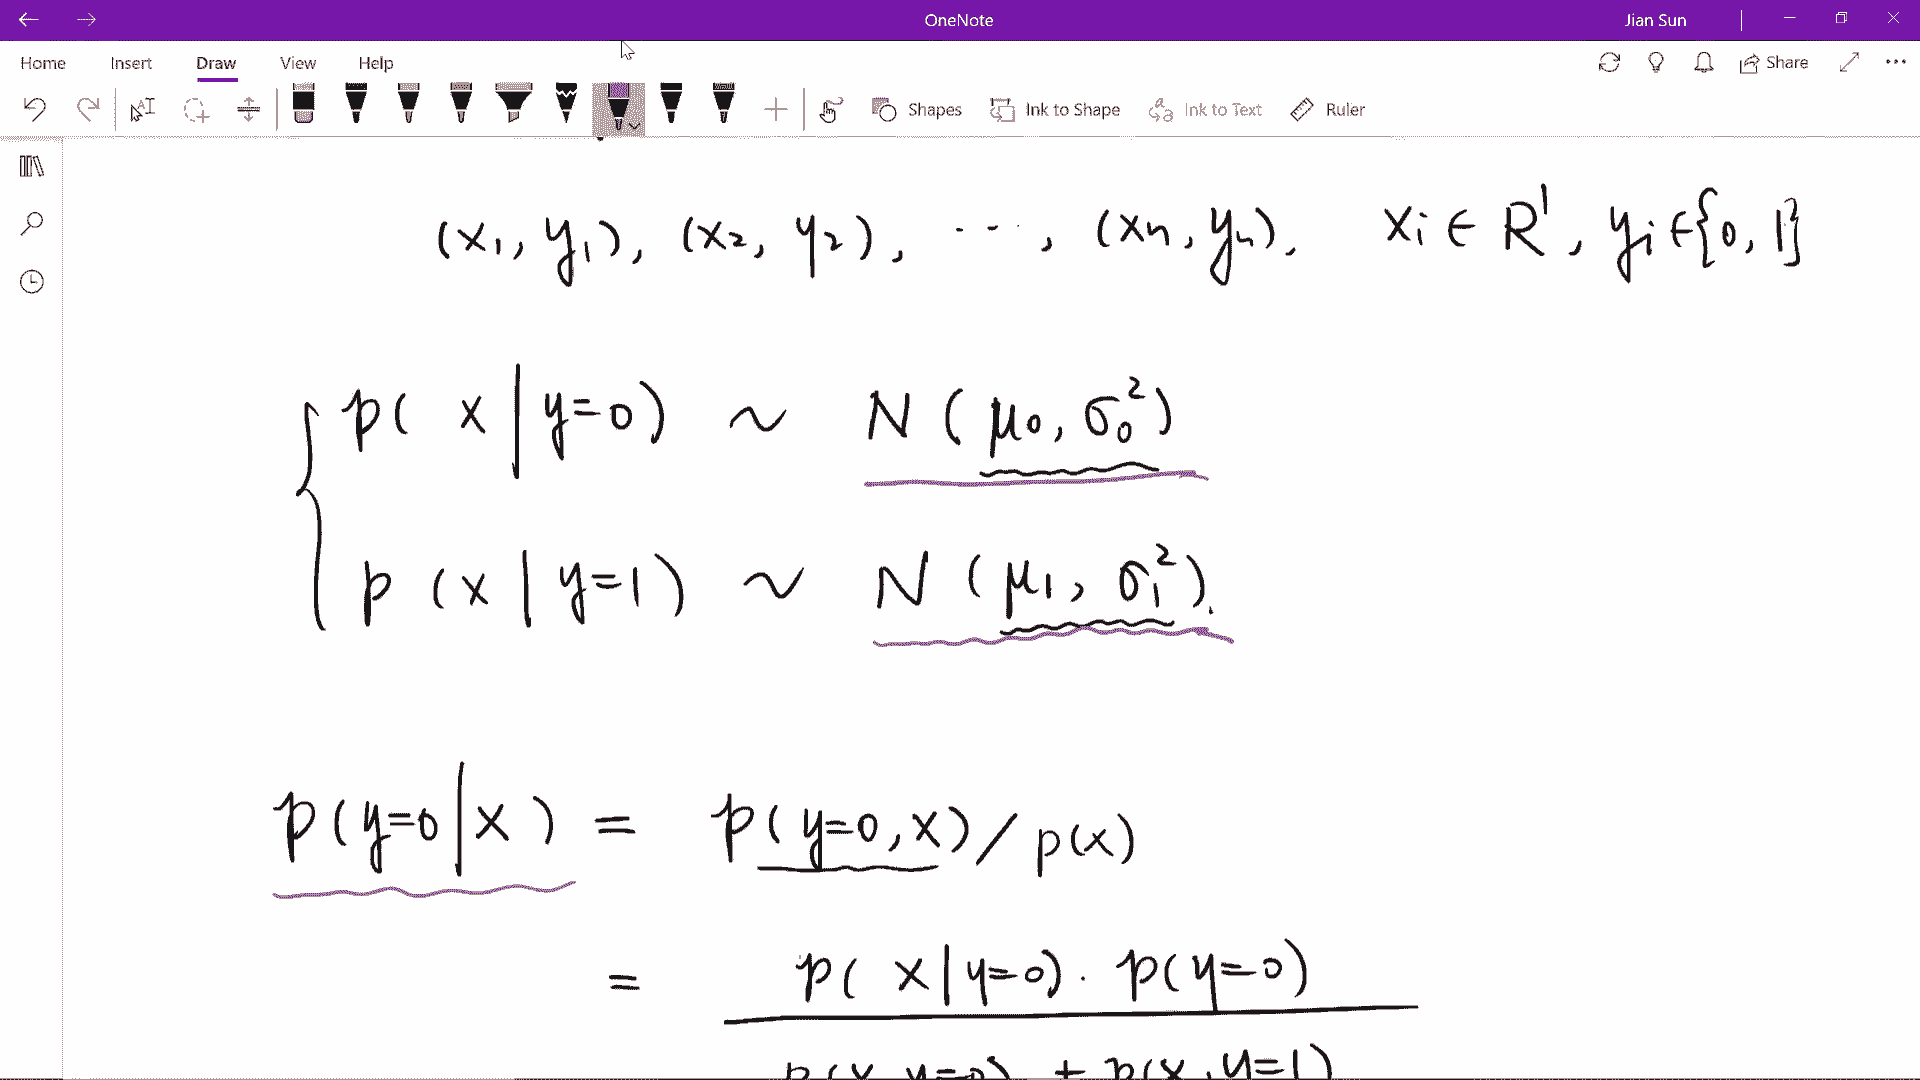 OneNote
Jian Sun
Home Insert Draw View Help
Share
Shapes Ink to Shape Ink to Text Ruler
(x₁, y₁), (x₂, y₂), ⋯, (xₙ, yₙ), xᵢ ∈ R¹, yᵢ ∈ {0, 1}
p( x | y=0) ~ N ( μ₀, σ₀²)
p (x | y=1) ~ N ( μ₁, σ₁²).
p(y=0 | x) = p(y=0, x) / p(x)
= p( x | y=0) · p(y=0)
p(x, y=0) + p(x, y=1)